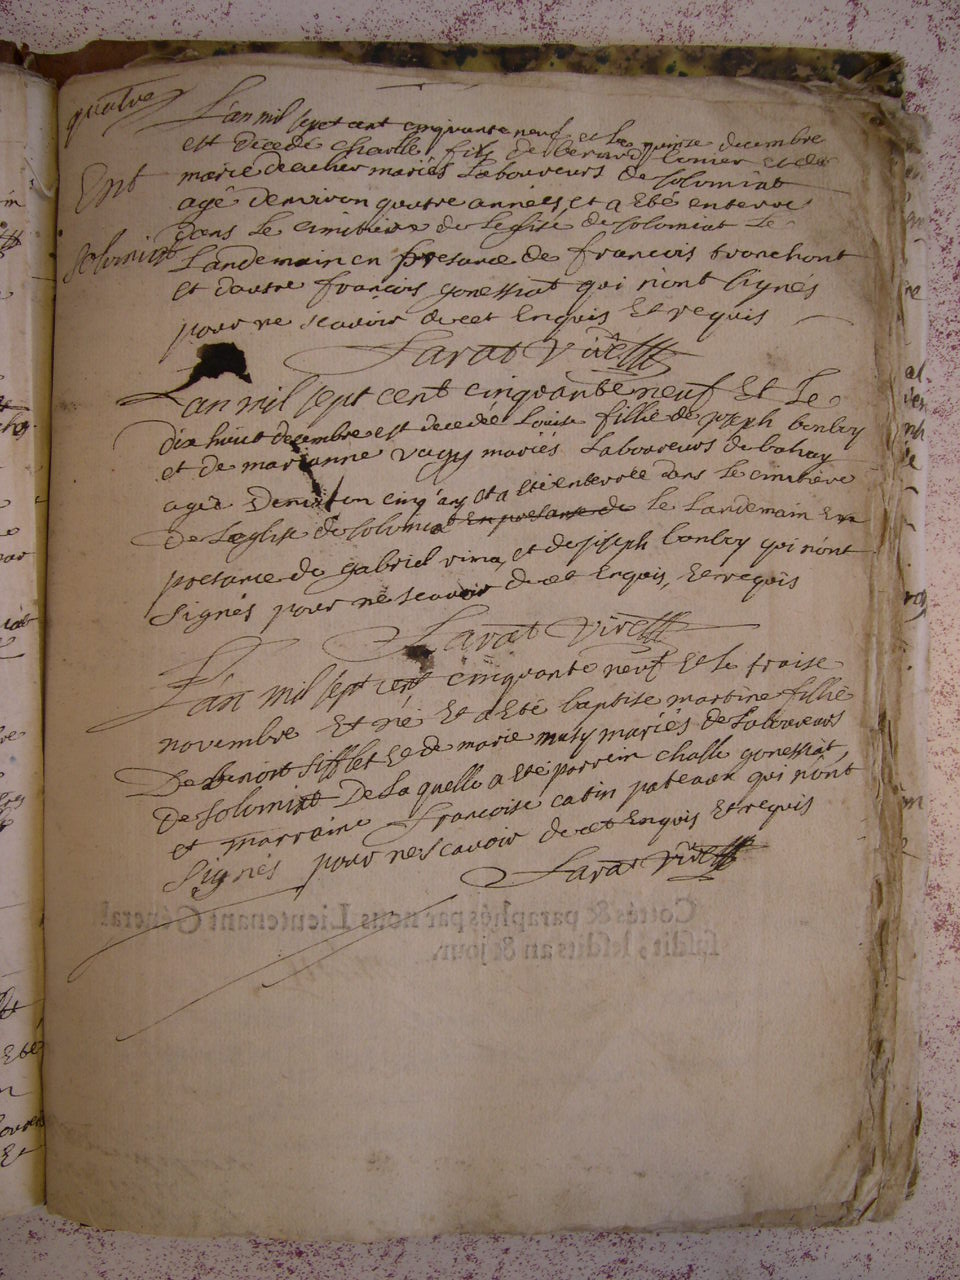 quatre
L'an mil sept cent cinquante neuf et Le quinze decembre
est decedé Charlle fils de Benoit et de
marie mariés Laboureurs de Solomiat
agé denviron quatre années et a Eté enterré
dans Le cimitiere de Leglise de Solomiat Le
Landemain en presance de francois tronchont
et dautre francois gonessiat qui n'ont signés
pour ne scavoir de cet Enquis Et requis
Ent
Solomiat
Larat vire
L'an mil sept cent cinquante neuf Et Le
dix huit decembre est decedeé Louise fillie de joseph bonboy
et de marianne vugy mariés Laboureurs de
ageé denviron cinq ans et a Eté enterrée dans Le cimitiere
De Leglise de Solomiat En presance de Le Landemain En
presance de gabriel et de joseph bonboy qui n'ont
signés pour ne scavoir de cet Enquis, Et requis
Larat vire
L'an mil sept cent cinquante neuf Et Le traise
novembre Et né Et a Eté baptisé martine fillie
De benoit sifflet Et de marie musy mariés de Laboureurs
de Solomiat De Laquelle a Eté parrein challe gonessiat,
et marraine francoise catin pateaux qui n'ont
signés pour ne scavoir de cet Enquis Et requis
Larat vire
Cottés & paraphés par nous Lieutenant Général
susdit, lesdits an & jour.